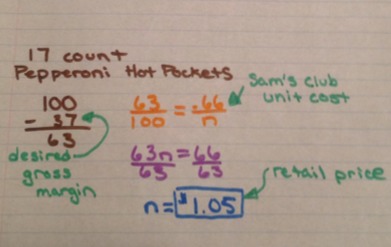 17 count
Pepperoni Hot Pockets
100
- 37
63
desired
gross
margin
63/100 = .66/n
Sam's Club
unit cost
63n/63 = 66/63
retail price
n = $1.05